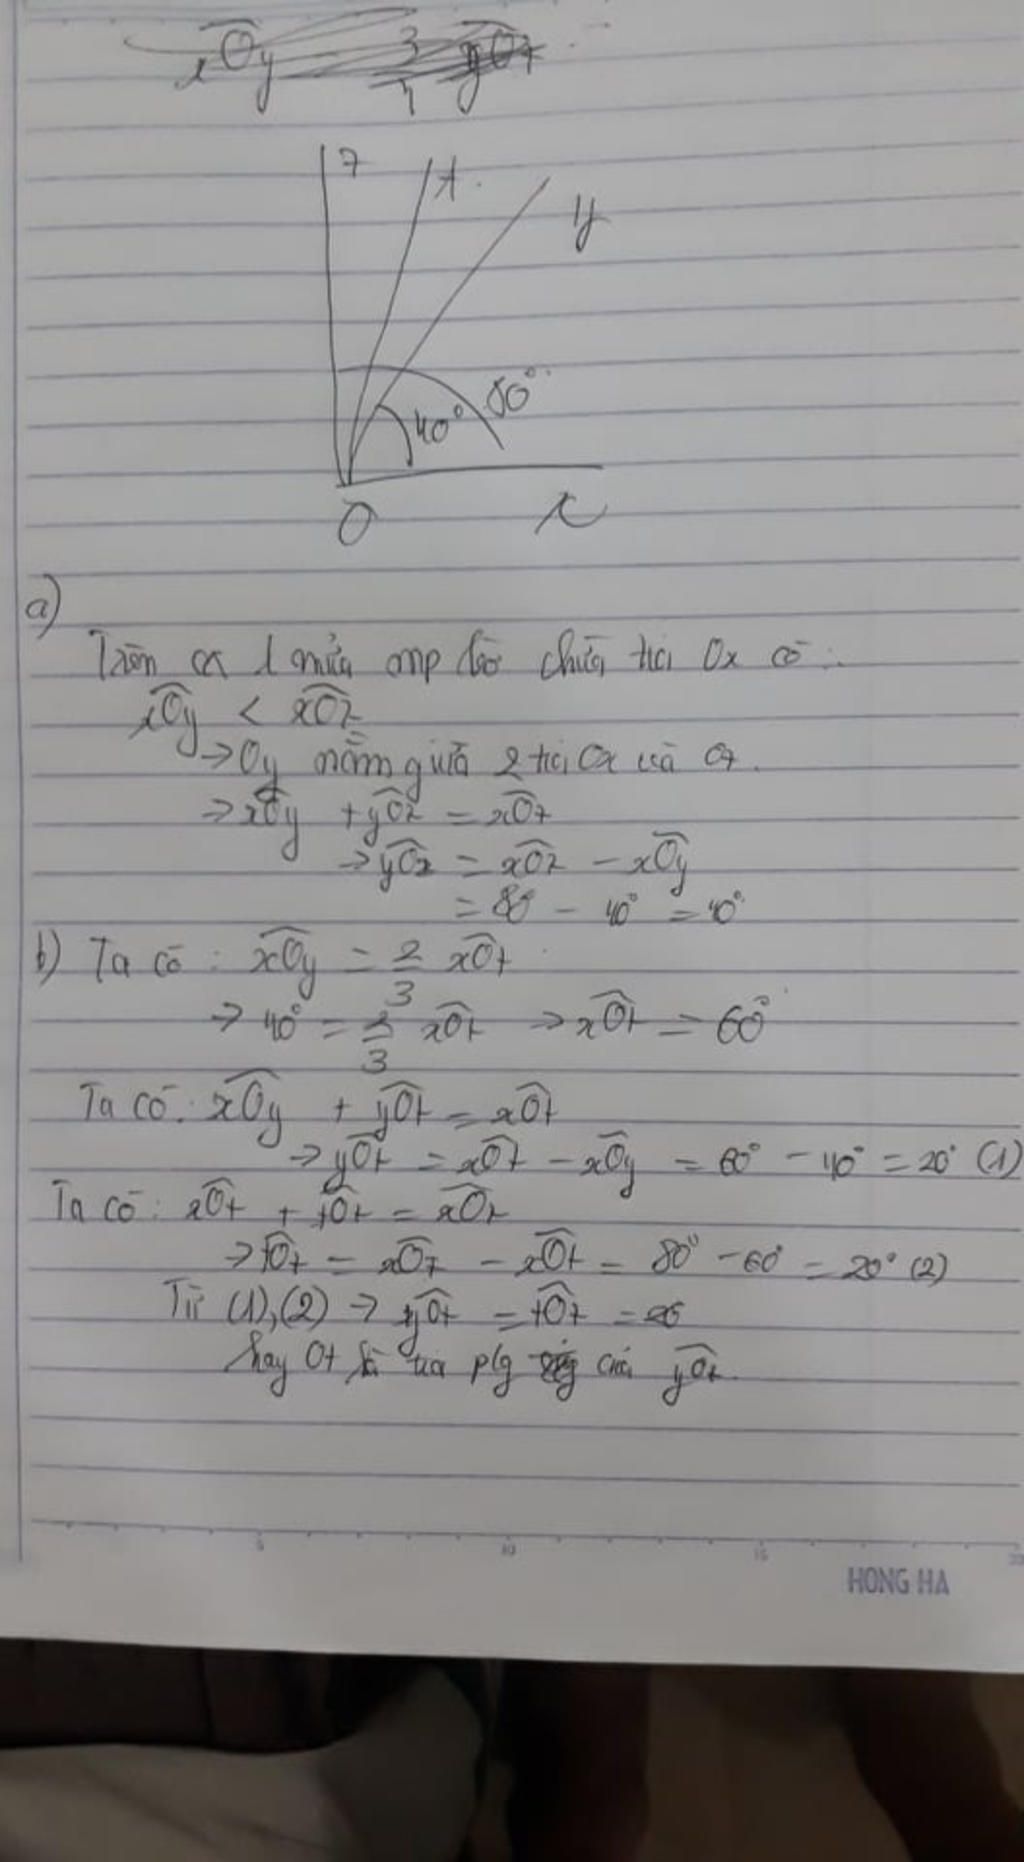 xOy 3/4 yOz
z
t
y
80°
40°
O
x
a)
Trên cx 1 nửa mp bờ chứa tia Ox có:
xOy < xOz
→ Oy nằm giữa 2 tia Ox và Oz.
→ xOy + yOz = xOz
→ yOz = xOz - xOy
= 80 - 40° = 40°
b) Ta có: xOy = 2/3 xOt
→ 40° = 2/3 xOt → xOt = 60°
Ta có: xOy + yOt = xOt
→ yOt = xOt - xOy = 60° - 40° = 20° (1)
Ta có: xOt + tOz = xOz
→ tOz = xOz - xOt = 80° - 60° = 20° (2)
Từ (1), (2) → yOt = tOz = 20
hay Ot là tia p/g của yOz.
5 10 15 20
HONG HA